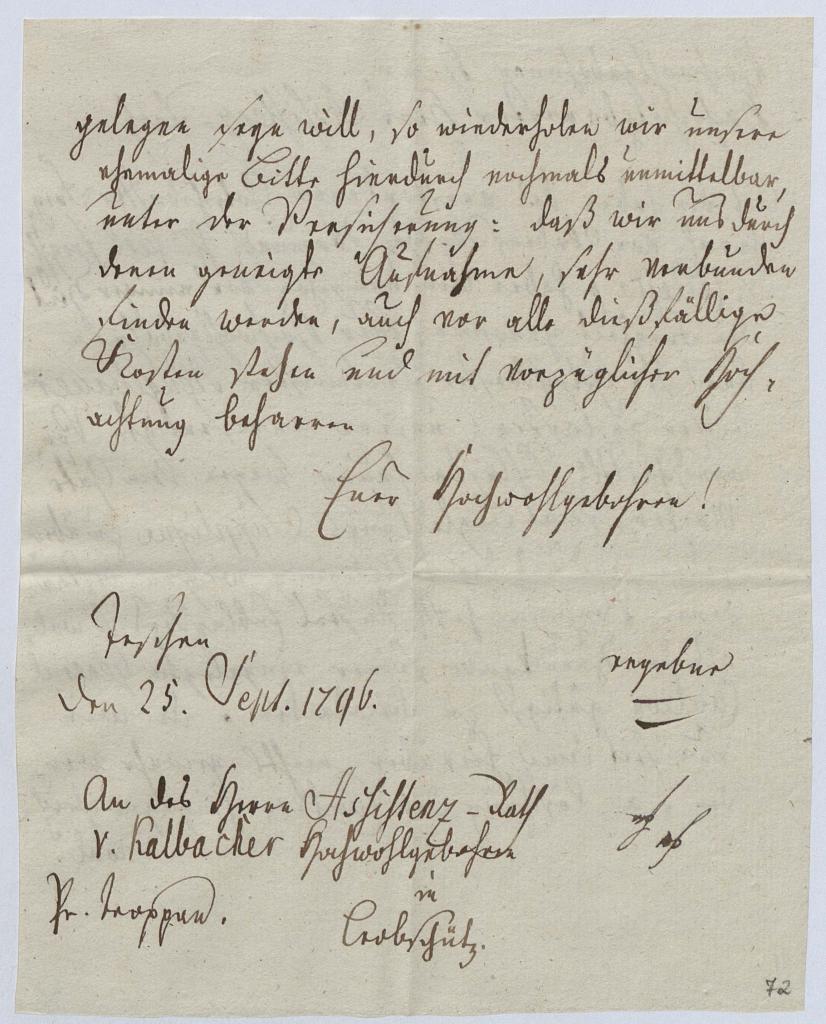 gelegen seyn will, so wiederholen wir unsere
ehemalige Bitte hierdurch nochmals unmittelbar,
unter der Versicherung: daß wir uns durch
deren geneigte Aufnahme, sehr verbunden
finden werden, auch vor alle dießfällige
Kosten stehen und mit vorzüglicher Hoch-
achtung beharren
Euer Hochwohlgebohren!
Teschen
den 25. Sept. 1796.
ergebne
An des Herrn Assistenz-Rath
v. Kalbacher Hochwohlgebohren
in
Pr. Troppau.
Leobschütz.
72